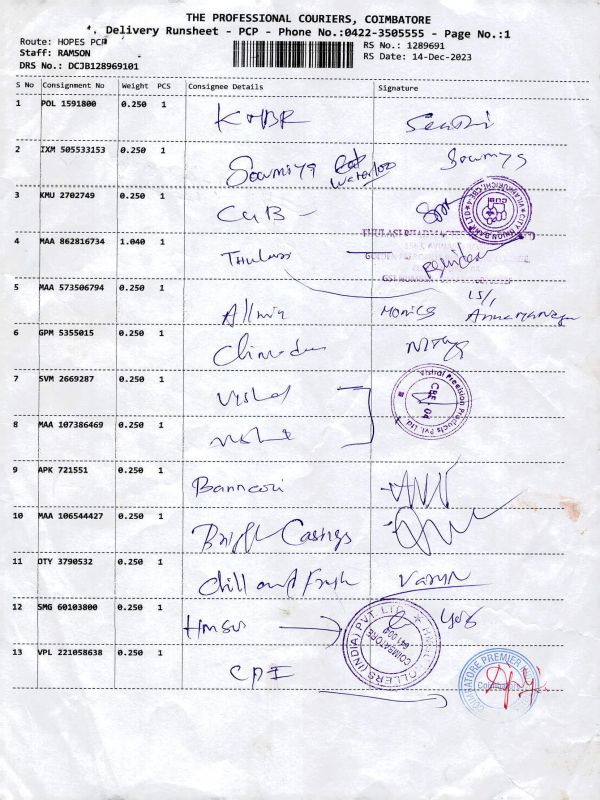 THE PROFESSIONAL COURIERS, COIMBATORE
Delivery Runsheet - PCP - Phone No.:0422-3505555 - Page No.:1
Route: HOPES PCP
Staff: RAMSON
DRS No.: DCJB128969101
RS No.: 1289691
RS Date: 14-Dec-2023
S No Consignment No Weight PCS Consignee Details Signature
1 POL 1591800 0.250 1 KMBR Senthi
2 IXM 505533153 0.250 1 Sowmiya Waterloo Sowmya
3 KMU 2702749 0.250 1 CUB -
CITY UNION BANK LTD
4 MAA 862816734 1.040 1 Thulasi
5 MAA 573506794 0.250 1 Monica
6 GPM 5355015 0.250 1 Nithya
7 SVM 2669287 0.250 1 Vishal
Vishal Precision Products Pvt. Ltd.
CBE 04
8 MAA 107386469 0.250 1
9 APK 721551 0.250 1 Bannari
10 MAA 106544427 0.250 1 Bright Casings
11 OTY 3790532 0.250 1 Chill and Fresh Varun
12 SMG 60103800 0.250 1
ROLLERS (INDIA) PVT. LTD.
COIMBATORE
13 VPL 221058638 0.250 1 CPI
COIMBATORE PREMIER